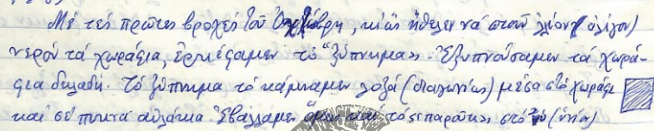 Μέ τές πρῶτες βροχές τοῦ Ὀχτώβρη, κι ὡς ἤθελεν νά σταθῆ λλίον (ὀλίγον)
νερόν τά χωράφια, ἐρκέφαμεν τό "ξύπνημα». Ἐξυπνούσαμεν τά χωρά-
φια δηλαδή. Τό ξύπνημα τό κάμναμεν λοξά (διαγωνίως) μέσα στό χωράφι
καί σέ πυκνά αὐλάκια. Ἐβάλλαμεν καί τό «σπαρτό» στό